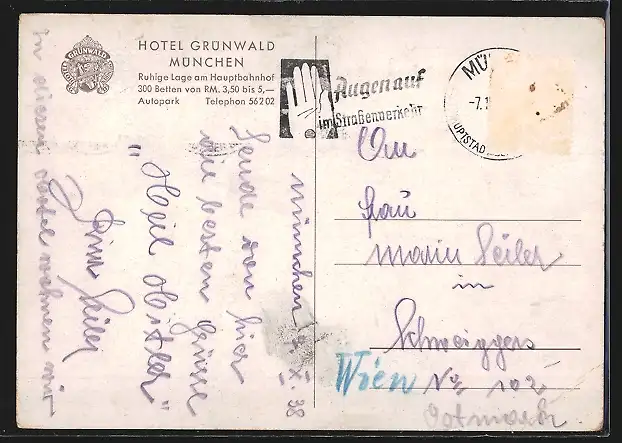 HOTEL GRÜNWALD
MÜNCHEN
Ruhige Lage am Hauptbahnhof
300 Betten von RM. 3,50 bis 5,—
Autopark Telephon 56202
HOTEL GRÜNWALD
Augen auf
im Straßenverkehr
MÜ
-7.1
HAUPTSTAD
München 7.X.38
Sende von hier
die besten Grüsse
"Heil Hitler"
Seiler
In diesem Hotel wohnen wir
An
Frau
Maria Seiler
in
Schweiggers
Nr. 102
Wien